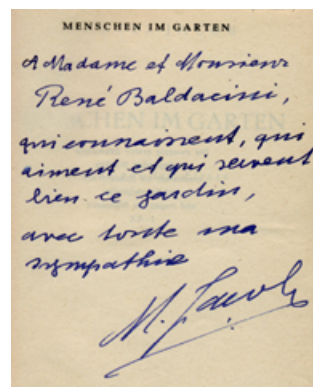 MENSCHEN IM GARTEN
A Madame et Monsieur
René Baldacini,
qui connaissent, qui
aiment et qui servent
bien ce jardin,
avec toute ma
sympathie
M.